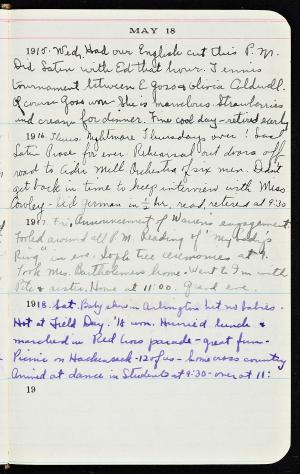 MAY 18
1915. Wed. Had our English cut this P.M.
Did Latin with Ed that hour. Tennis
tournament between E. Goss & Olivia Caldwell.
Of course Goss won. She is marvelous. Strawberries
and cream for dinner. Fine cool day - retired early
1916. Thurs. Nightmare Thursdays over! Last
Latin Prose for ever. Rehearsal out doors off
road to Cider Mill. Orchestra of six men. Didn't
get back in time to keep interview with Miss
Cowley - Did German in ½ hr, read, retired at 9:30
1917. Fri. Announcement of Warren's engagement
Fooled around all P.M. Reading of "My Lady's
Ring" in eve. Soph tree ceremonies at 9.
Took Mrs. Bartholomew home. Went to Inn with
Pete & sister. Home at 11:00. Grand eve.
1918. Sat. Baby show in Arlington but no babies.
Hot at Field Day. '18 won. Hurried lunch &
marched in Red Cross parade - great fun -
Picnic on Hackensack - 12 of us - home cross country
Arrived at dance in Students at 9:30 - over at 11:
19